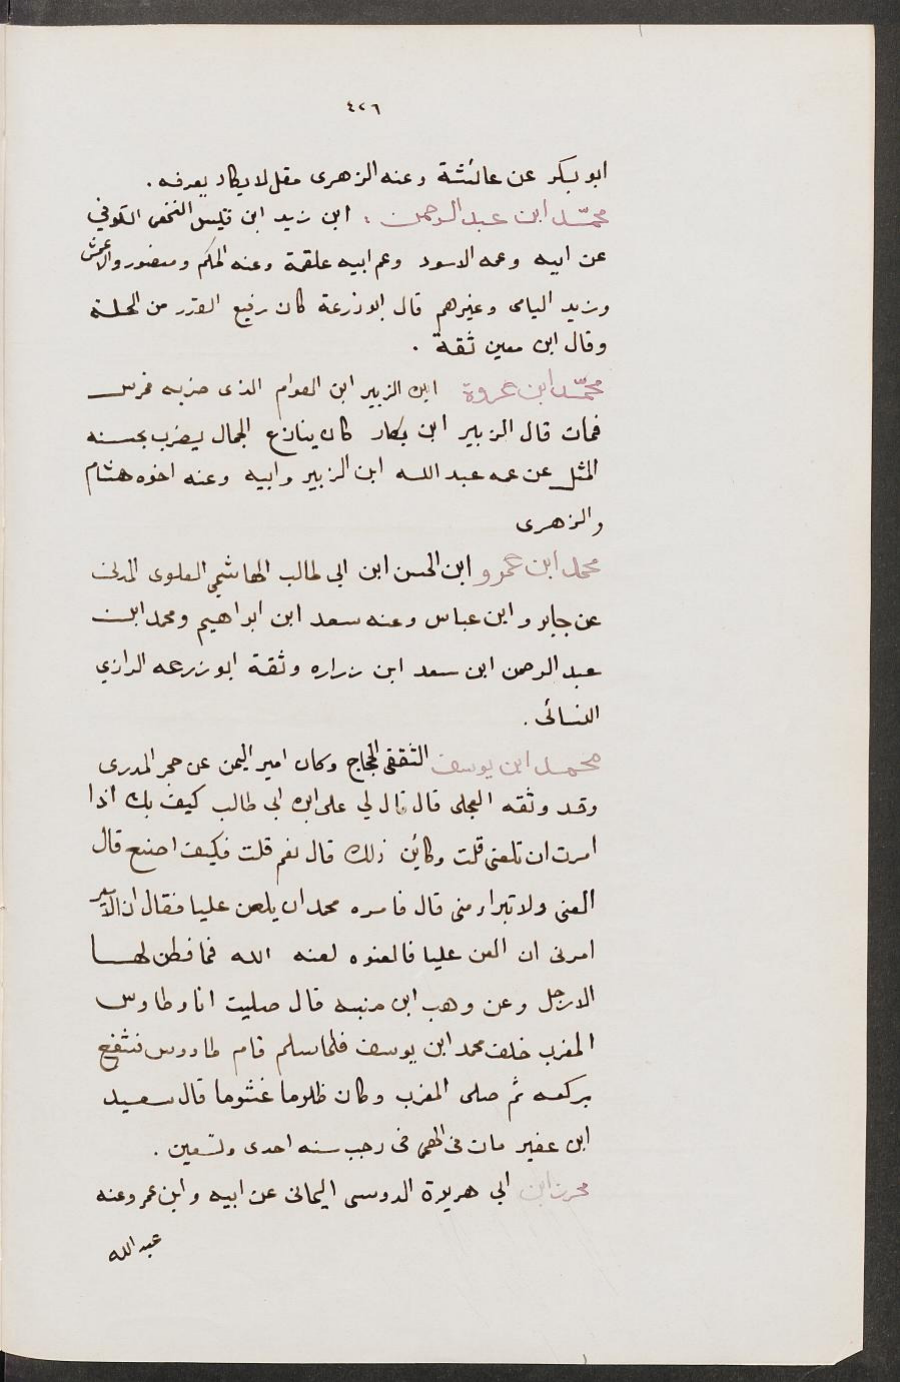 ٤٢٦
ابو بكر عن عائشة وعنه الزهرى مقل لا يكاد يعرف .
محمّد ابن عبد الرحمن : ابن زيد ابن قليس النخعى الكوفي
عن ابيه وعمه الاسود وعم ابيه علقمة وعنه الحكم ومنصور والاعمش
وزيد اليامى وغيرهم قال ابو زرعة كان رفيع القدر من الجلة
وقال ابن معين ثقة .
محمّد ابن عروة ابن الزبير ابن العوام الذى ضربه فرس
فمات قال الزبير ابن بكار كان ينازع الجمال يضرب بحسنه
المثل عن عمه عبد الله ابن الزبير وابيه وعنه اخوه هشام
والزهرى
محمد ابن عمرو ابن الحسن ابن ابي طالب الهاشمي العلوى المدنى
عن جابر وابن عباس وعنه سعد ابن ابراهيم ومحمد ابن
عبد الرحمن ابن سعد ابن زراره وثقة ابو زرعه الرازي
النسائى .
محمد ابن يوسف الثقفى الحجاج وكان امير اليمن عن حجر المدرى
وقد وثقه العجلى قال قال لي على ابن ابى طالب كيف بك اذا
امرت ان تلعنى قلت وكائن ذلك قال نعم قلت فكيف اصنع قال
العنى ولا تبراء منى قال فامره محمد ان يلعن عليا فقال ان الامير
امرنى ان العن عليا فالعنوه لعنه الله فما فطن لها
الا رجل وعن وهب ابن منبه قال صليت انا وطاوس
المغرب خلف محمد ابن يوسف فلما سلم قام طاووس فشفع
بركعه ثم صلى المغرب وكان ظلوما غشوما قال سعيد
ابن عفير مات فى رجب سنه احدى وتسعين .
محرر ابن ابي هريرة الدوسى اليمانى عن ابيه وابن عمر وعنه
عبد الله